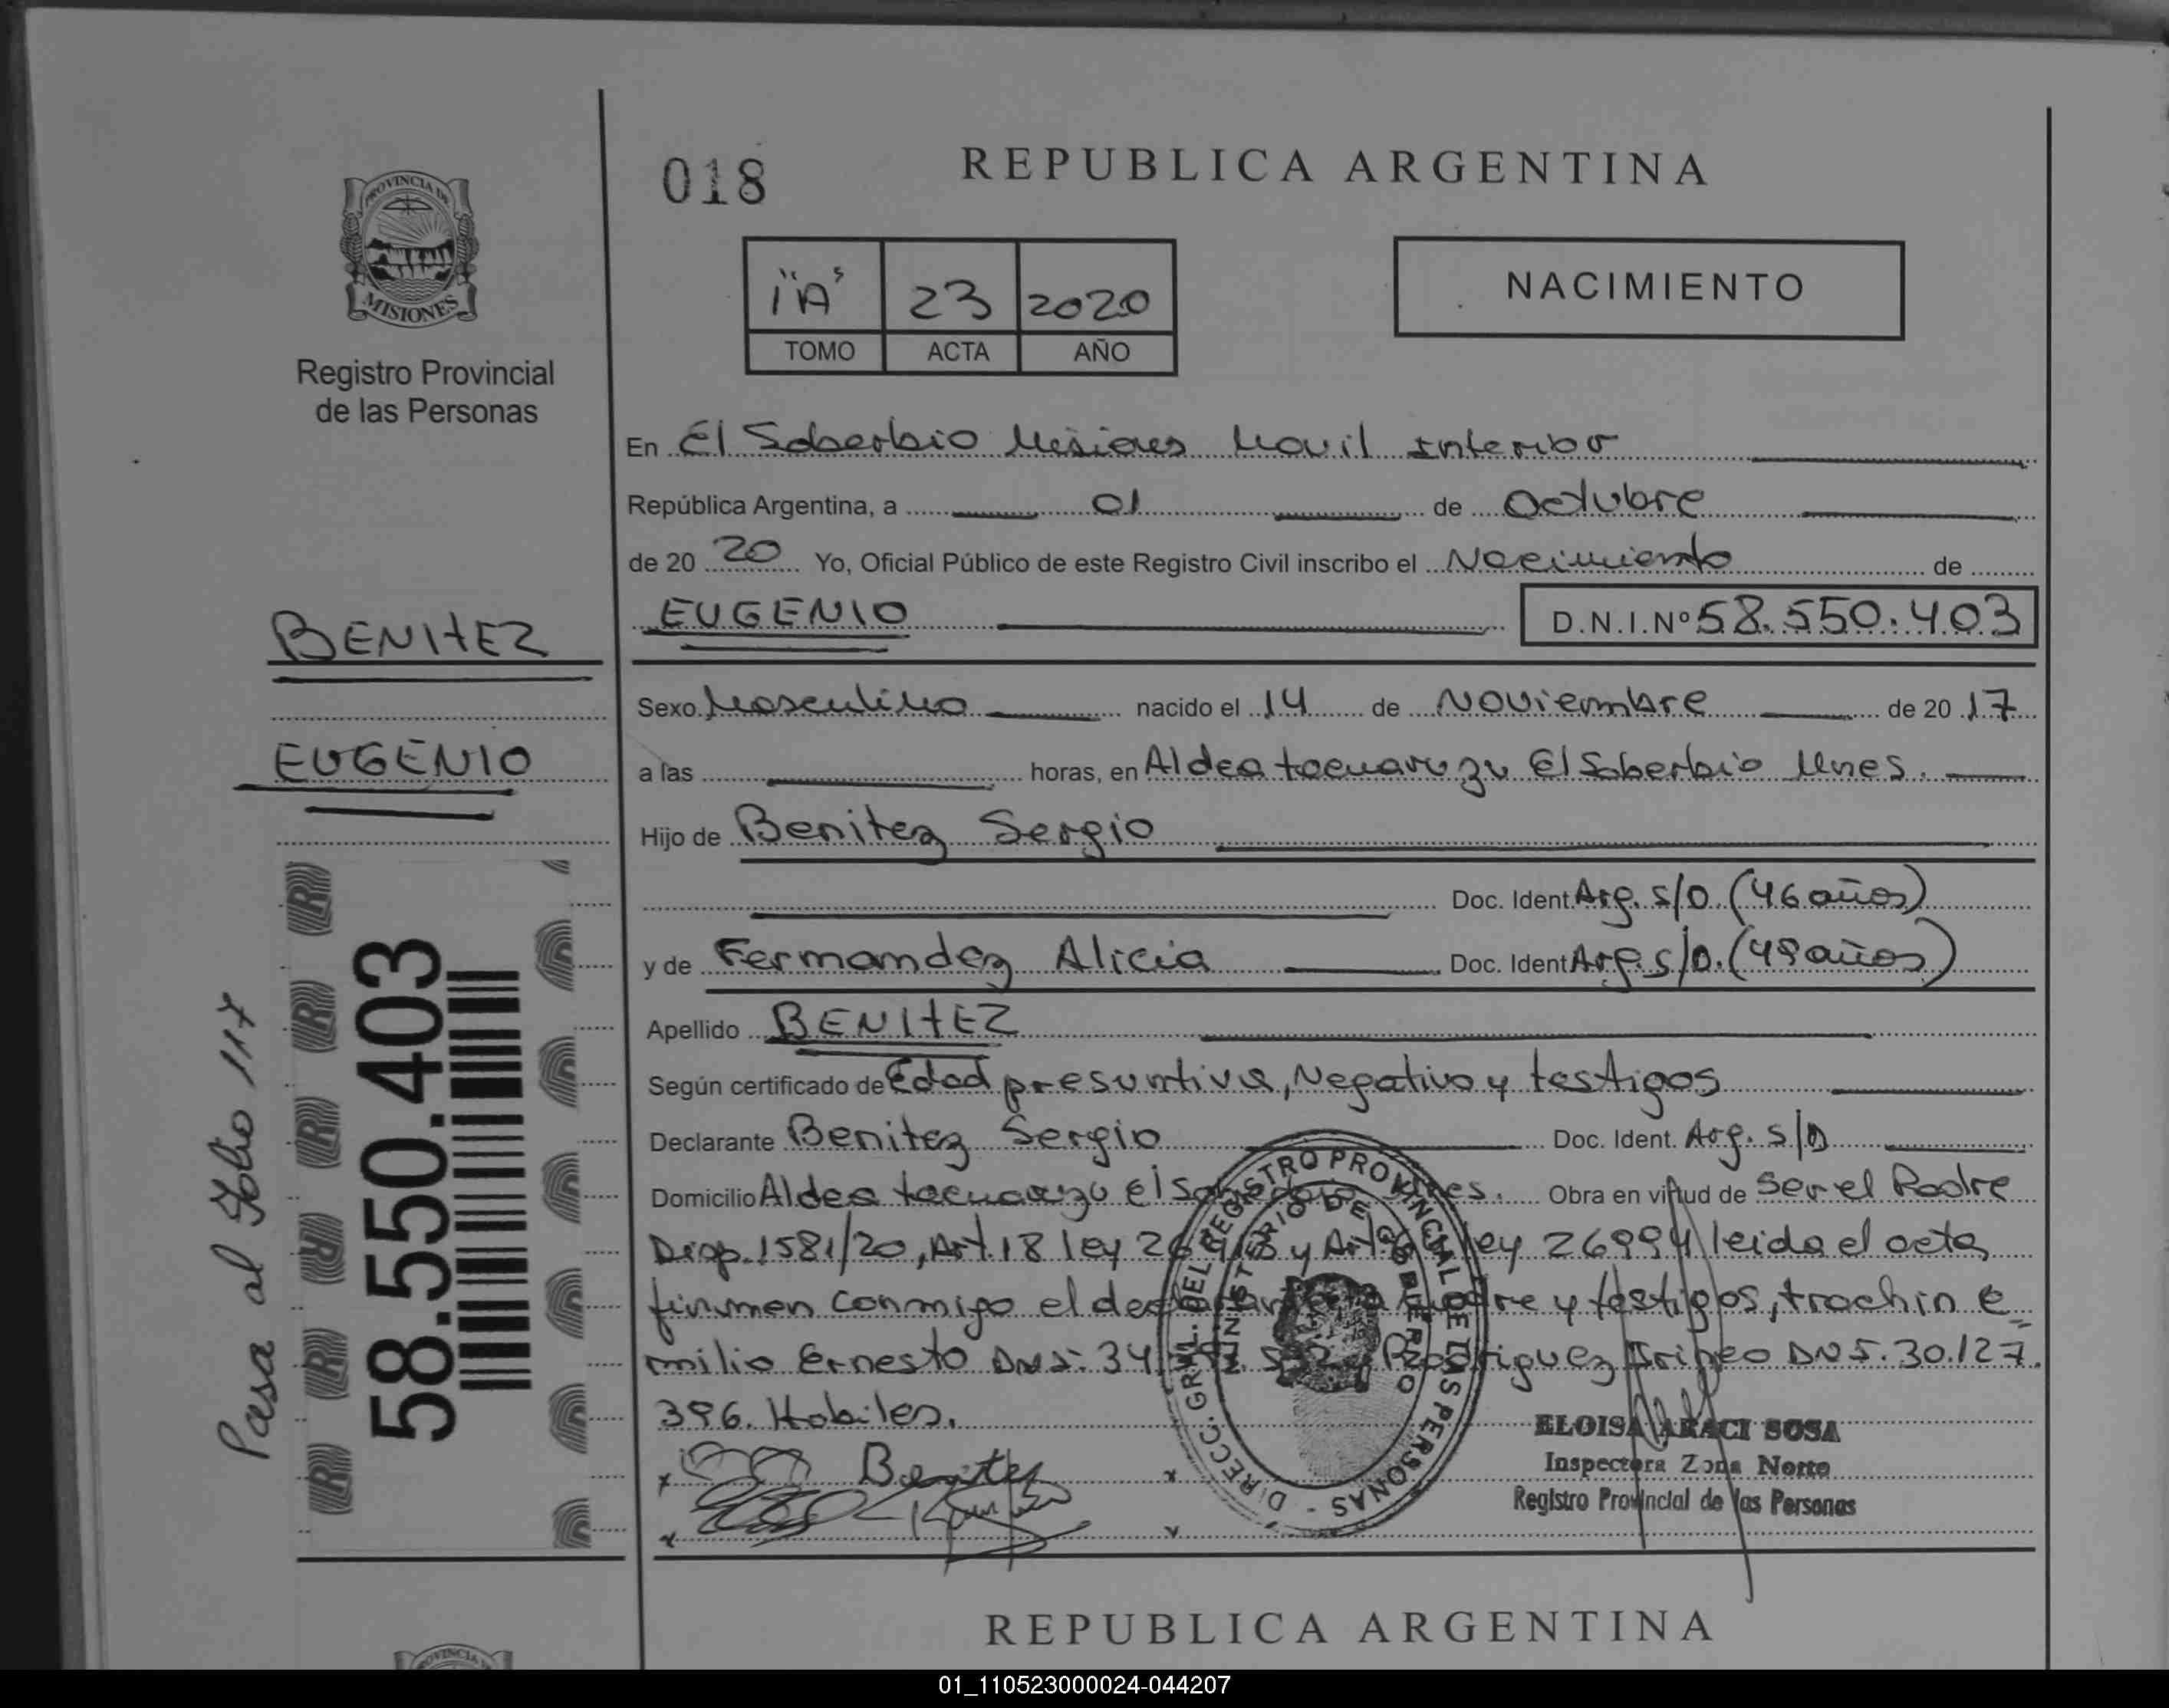 018
REPUBLICA ARGENTINA
PROVINCIA DE
MISIONES
Registro Provincial
de las Personas
"A" 23 2020
TOMO ACTA AÑO
NACIMIENTO
En El Soberbio Misiones Movil Interior
República Argentina, a 01 de Octubre
de 20 20 Yo, Oficial Público de este Registro Civil inscribo el Nacimiento de
EUGENIO D.N.I.Nº 58.550.403
BENITEZ
EUGENIO
Sexo Masculino nacido el 14 de Noviembre de 20 17
a las horas, en Aldea tacuaruzu El Soberbio Mnes.
Hijo de Benitez Sergio
Doc. Ident. Arg. S/D. (46 años)
y de Fernandez Alicia Doc. Ident Arg. S/D. (49 años)
Apellido BENITEZ
Según certificado de Edad presuntiva, Negativo y testigos
Declarante Benitez Sergio Doc. Ident. Arg. S/D
Domicilio Aldea tacuaruzu el Soberbio Mnes. Obra en virtud de Ser el Padre
Disp. 1581/20, Art. 18 ley 26413 y Art. ley 26994 leida el acta
firman conmigo el declarante la madre y testigos, trachin e
milio Ernesto DNI: 34 Rodriguez Irineo DNI. 30.127.
396. Habiles.
Benitez
DIRECC. GRAL. DEL REGISTRO PROVINCIAL DE LAS PERSONAS -
MINISTERIO DE GOBIERNO
ELOISA ARACI SOSA
Inspectora Zona Norte
Registro Provincial de las Personas
58.550.403
Pasa al Folio 117
REPUBLICA ARGENTINA
PROVINCIA
01_110523000024-044207